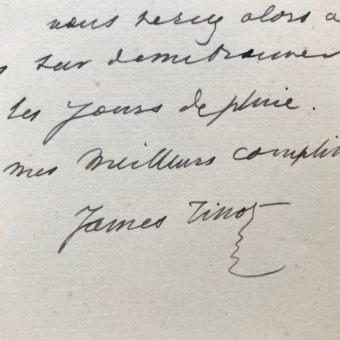 vous serez alors a
sur de me trouver
les jours de pluie.
mes meilleurs complim
James Tissot